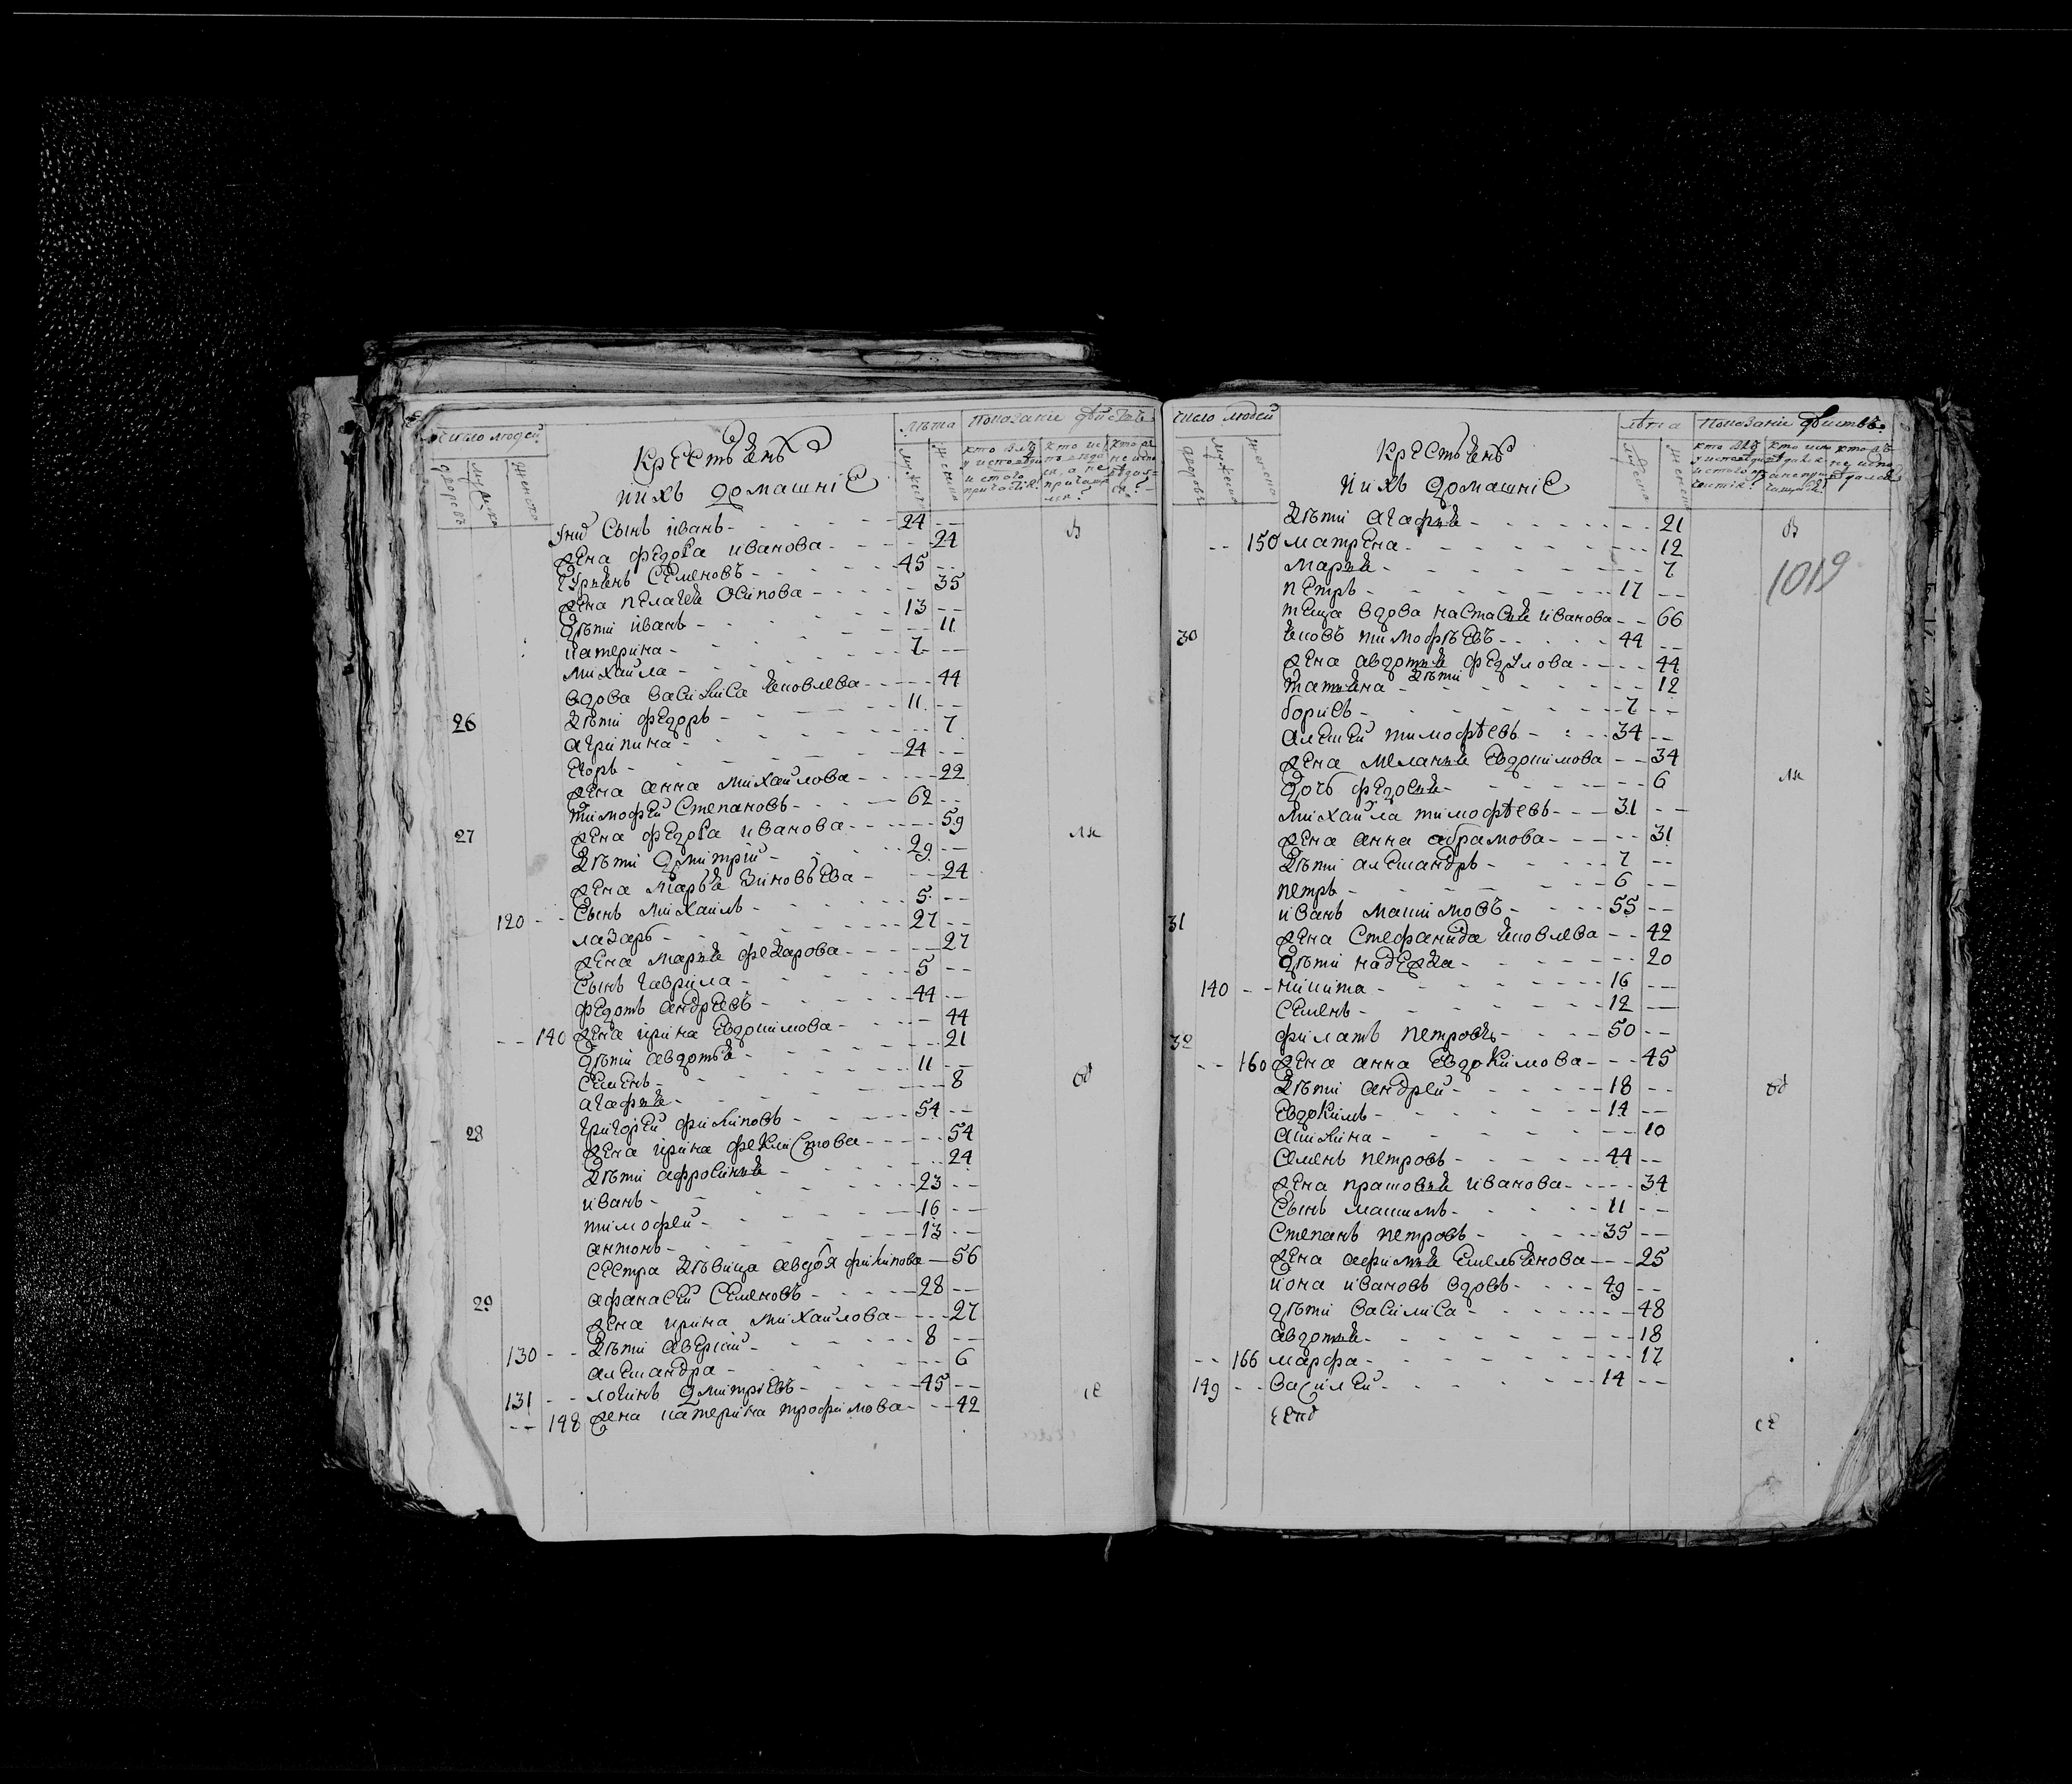 число людей
дворовъ
мужеска
женска
Крестьянъ
ихъ домашніе
лѣта
мужеска
женска
Показаніе дѣйствъ
кто былъ у исповѣди и с̃того причастія?
кто исповѣдался, а не причащался?
кто же не исповѣдался?
сынъ иванъ - 24 --
жена федоса иванова - -- 24
гурьянъ семеновъ - 45 --
жена пелагѣя осипова - -- 35
дѣти иванъ - 13 --
катерина - -- 11
михаила - 7 --
вдова василиса яковлева - -- 44
26 дѣти федоръ - 11 --
агрипина - -- 7
егоръ - 24 --
жена анна михайлова - -- 22
тимофей степановъ - 62 --
27 жена федоса иванова - -- 59
дѣти дмитрій - 29 --
жена марья зиновьева - -- 24
120 -- сынъ михаилъ - 5 --
лазарь - 27 --
жена марья - -- 27
сынъ гаврила - 5 --
федотъ андреевъ - 44 --
-- 140 жена ирина евдокимова - -- 44
дѣти авдотья - -- 21
семенъ - 11 --
агафья - -- 8
28 григорей филиповъ - 54 --
жена ирина феклистова - -- 54
дѣти афросинья - -- 24
иванъ - 23 --
тимофей - 16 --
антонъ - 13 --
сестра дѣвица авдотя филипова - 56
29 афанасей семеновъ - 28 --
жена ирина михайлова - -- 27
130 -- дѣти аверкій - 8 --
александра - -- 6
131 -- логинъ дмитреевъ - 45 --
-- 148 жена катерина трофимова - -- 42
въ
лк
об
се
число людей
дворовъ
мужеска
женска
Крестьянъ
ихъ домашніе
лѣта
мужеска
женска
Показаніе дѣйствъ
дѣти агафья - -- 21
-- 150 матрена - -- 12
марья - -- 7
петръ - 17 --
теща вдова настасья иванова - -- 66
30 яковъ тимофѣевъ - 44 --
жена авдотья федулова - -- 44
дѣти
татьяна - -- 12
борисъ - 7 --
алексей тимофѣевъ - 34 --
жена меланья евдокимова -- 34
дочь федосья - -- 6
михаила тимофѣевъ - 31 --
жена анна абрамова - -- 31
дѣти александръ - 7 --
петръ - 6 --
31 иванъ максимовъ - 55 --
жена стефанида яковлева -- 42
дѣти надежда - -- 20
140 -- никита - 16 --
семенъ - 12 --
32 филатъ петровъ - 50 --
-- 160 жена анна евдокимова - -- 45
дѣти андрей - 18 --
евдокимъ - 14 --
акилина - -- 10
семенъ петровъ - 44 --
жена прасковья иванова - -- 34
сынъ максимъ - 11 --
степанъ петровъ - 35 --
жена афимья емельянова - -- 25
иона ивановъ вдовъ - 49 --
дѣти василиса - -- 48
авдотья - -- 18
-- 166 марфа - -- 17
149 -- василей - 14 --
1019
въ
лк
об
се